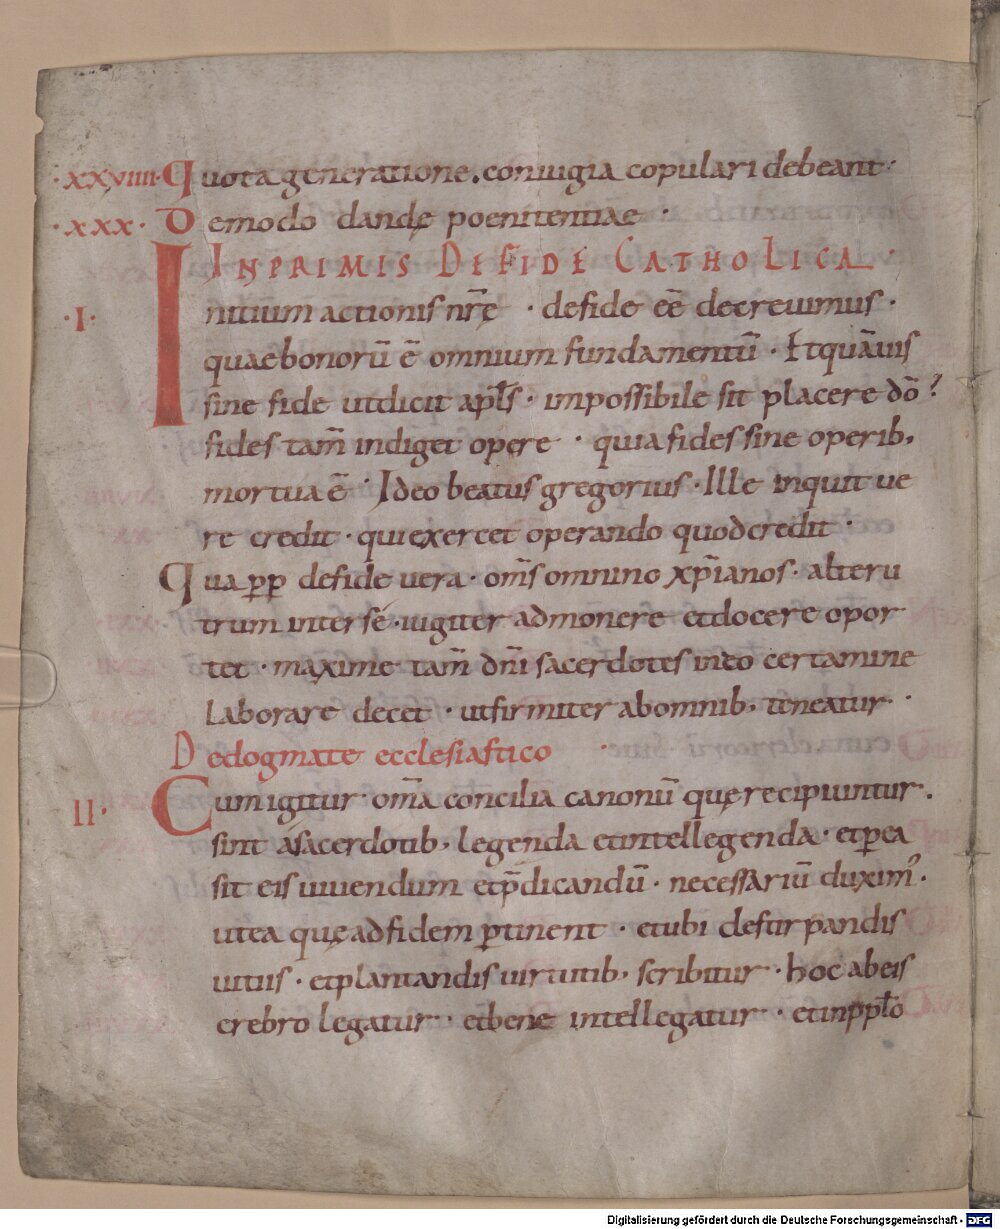 ·xxviiii· Quota generatione. coniugia copulari debeant·
·xxx· De modo dandę poenitentiae ·
INPRIMIS DE FIDE CATHOLICA
·I· Initium actionis nr̄ę · de fide eē decreuimus ·
quae bonorū ē omnium fundamentū · Et quāuis
sine fide ut dicit apl̄s · impossibile sit placere dō?
fides tam̄ indiget opere · quia fides sine operib,
mortua ē · Ideo beatus gregorius · Ille inquit ue
re credit · qui exercet operando quod credit ·
Qua ꝓp de fide uera · om̄s omnino xp̄ianos · alteru
trum inter sé · iugiter admonere et docere opor
tet · maxime tam̄ dn̄i sacerdotes in eo certamine
laborare decet · ut firmiter ab omnib, teneatur ·
De dogmate ecclesiastico
II· Cum igitur om̄a concilia canonū quę recipiuntur.
sint á sacerdotib, legenda et intellegenda · et ꝑ ea
sit eis uiuendum et p̄dicandū · necessariū duxim᾽.
ut ea quę ad fidem ꝑtinent · et ubi de stirpandis
uitiis · et plantandis uirtutib, scribitur · hoc ab eis
crebro legatur · et bene intellegatur · et in ppl̄o
Digitalisierung gefördert durch die Deutsche Forschungsgemeinschaft - DFG